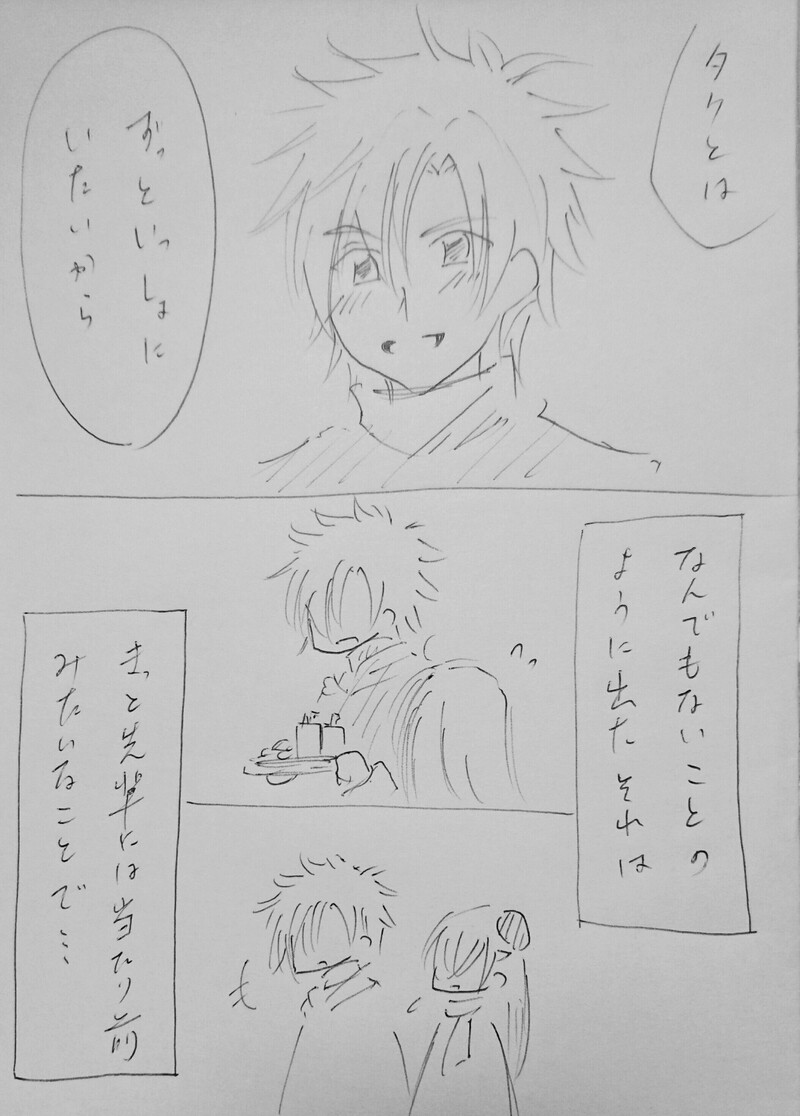 タケとは
ずっといっしょに
いたいから
なんでもないことの
ように出たそれは
きっと先輩には当たり前
みたいなことで…